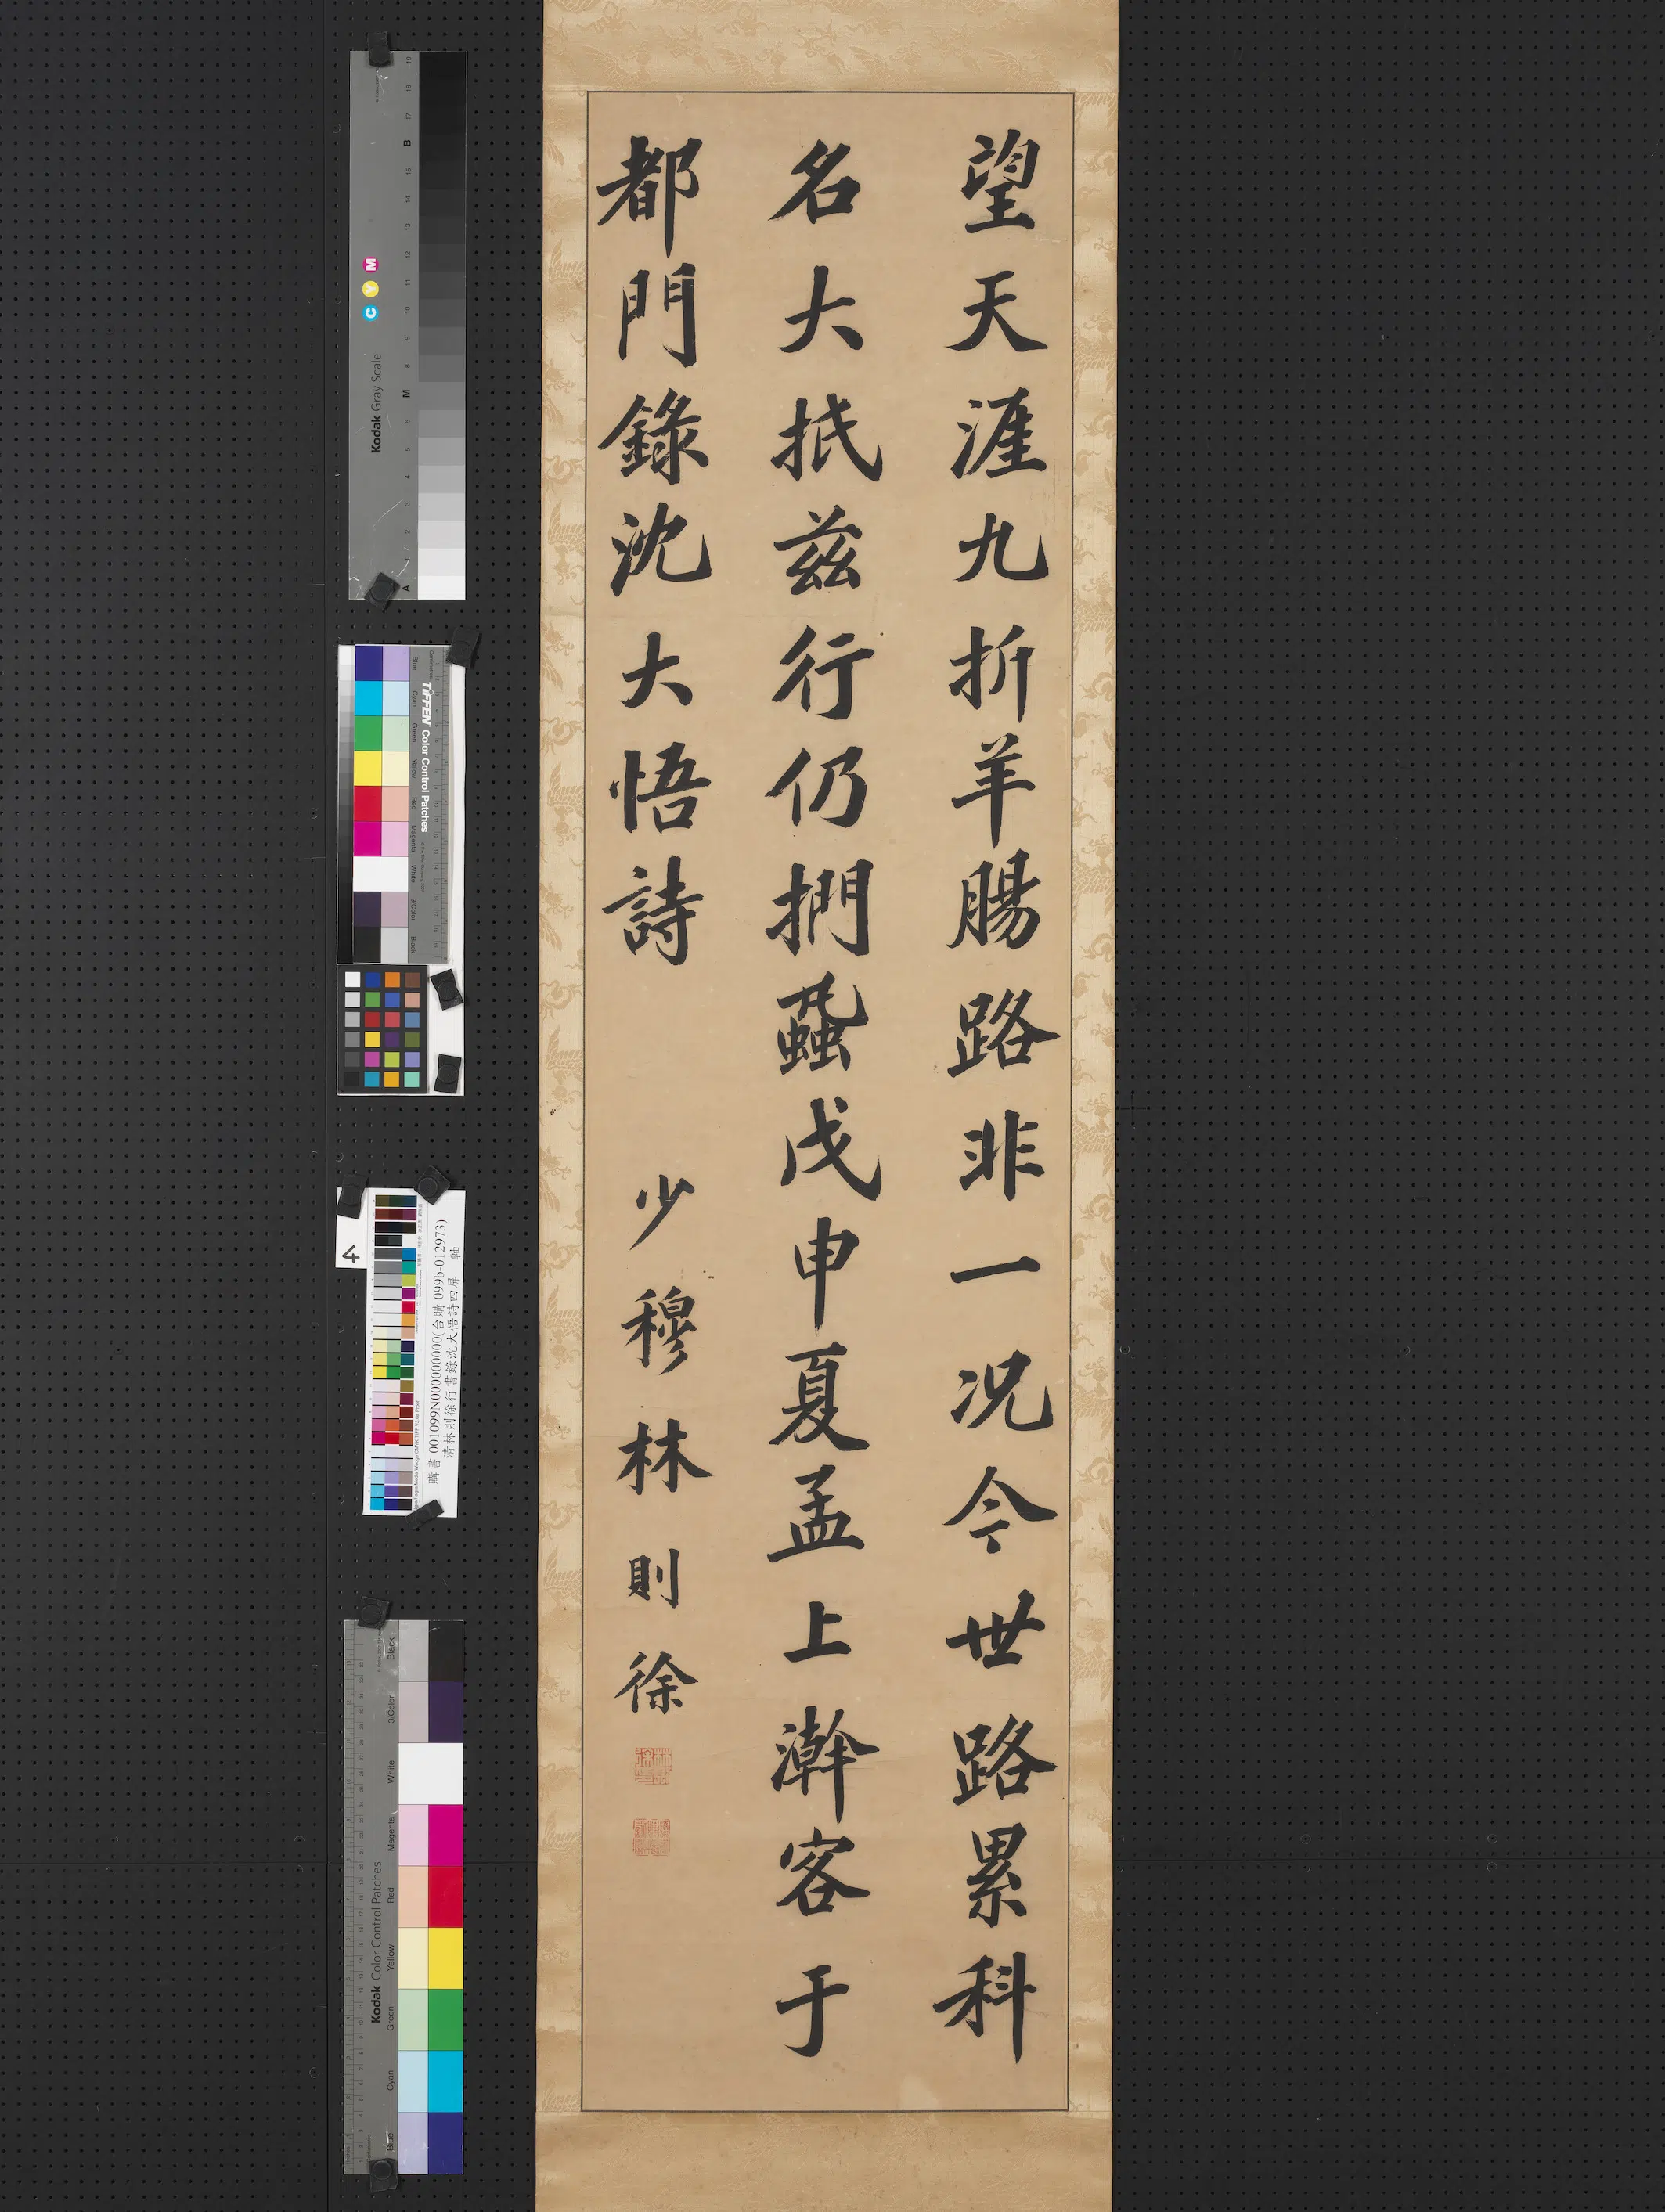 望天涯九折羊腸路非一况今世路累科
名大抵兹行仍捫蝨戊申夏孟上澣客于
都門錄沈大悟詩
少穆林則徐
Kodak Gray Scale
C Y M
A 1 2 3 4 5 6 M 8 9 10 11 12 13 14 15 B 17 18 19
TIFFEN Color Control Patches
Blue Cyan Green Yellow Red Magenta White 3/Color Black
4
購書 001099N000000000(台購 099b-012973)
清林則徐行書錄沈大悟詩四屏 軸
Kodak Color Control Patches
Blue Cyan Green Yellow Red Magenta White 3/Color Black